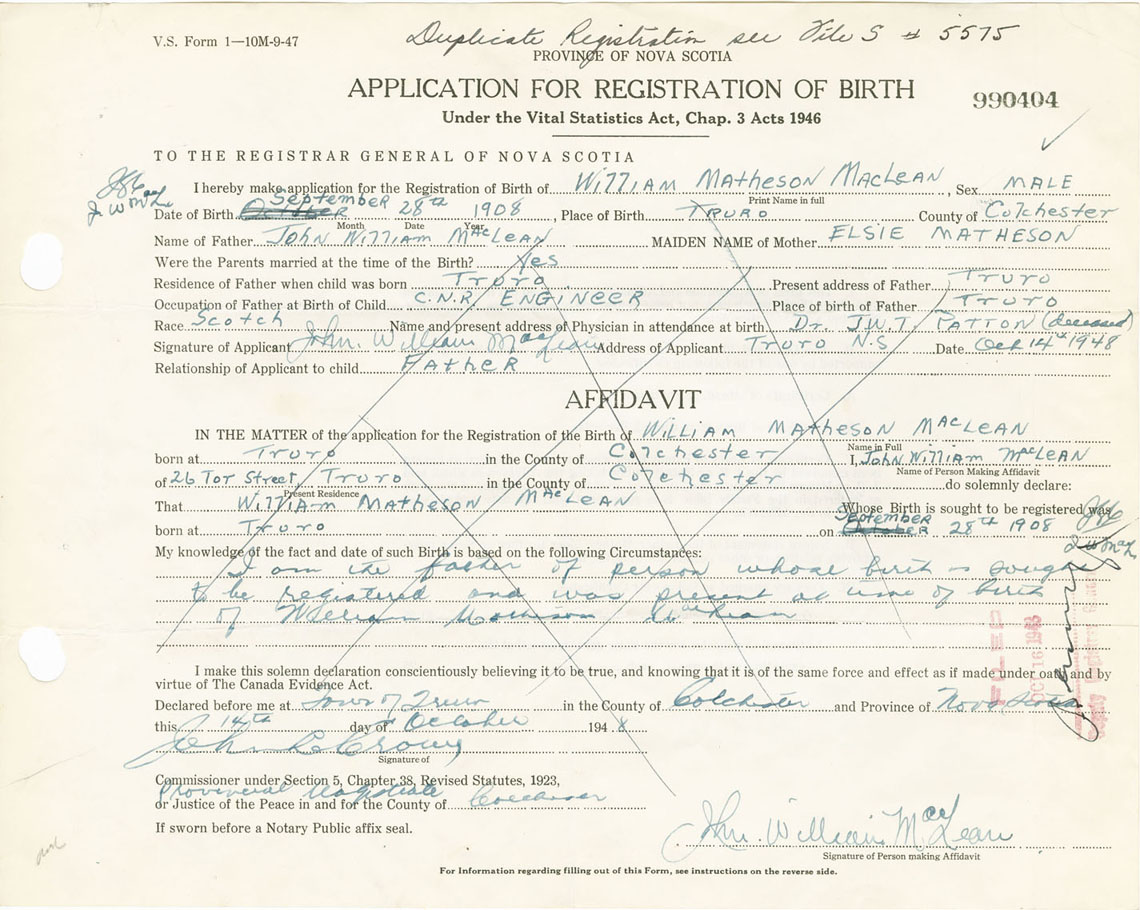 V.S. Form 1—10M-9-47
Duplicate Registration see File S # 5575
PROVINCE OF NOVA SCOTIA
APPLICATION FOR REGISTRATION OF BIRTH
990404
Under the Vital Statistics Act, Chap. 3 Acts 1946
TO THE REGISTRAR GENERAL OF NOVA SCOTIA
I hereby make application for the Registration of Birth of William Matheson MacLean, Sex MALE
Print Name in full
September
Date of Birth October 28th 1908, Place of Birth TRURO County of Colchester
Month Date Year
Name of Father John William MacLean MAIDEN NAME of Mother ELSIE MATHESON
Were the Parents married at the time of the Birth? Yes
Residence of Father when child was born Truro Present address of Father Truro
Occupation of Father at Birth of Child C.N.R. ENGINEER Place of birth of Father Truro
Race Scotch Name and present address of Physician in attendance at birth Dr. J.W.T. PATTON (deceased)
Signature of Applicant John. William MacLean Address of Applicant Truro N.S Date Oct 14th 1948
Relationship of Applicant to child FATHER
AFFIDAVIT
IN THE MATTER of the application for the Registration of the Birth of WILLIAM MATHESON MacLEAN
Name in Full
born at Truro in the County of Colchester I, John William MacLEAN
Name of Person Making Affidavit
of 26 Tor Street, Truro in the County of Colchester do solemnly declare:
Present Residence
That William Matheson MacLEAN Whose Birth is sought to be registered was
September
born at Truro on October 28th 1908
My knowledge of the fact and date of such Birth is based on the following Circumstances:
I am the father of person whose birth is sought
to be registered and was present at time of birth
of William Matheson MacLean
I make this solemn declaration conscientiously believing it to be true, and knowing that it is of the same force and effect as if made under oath and by
virtue of The Canada Evidence Act.
Declared before me at Town of Truro in the County of Colchester and Province of Nova Scotia
this 14th day of October 1948
Signature of
Commissioner under Section 5, Chapter 38, Revised Statutes, 1923,
Provincial Magistrate
or Justice of the Peace in and for the County of Colchester
If sworn before a Notary Public affix seal.
John. William MacLean
Signature of Person making Affidavit
For Information regarding filling out of this Form, see instructions on the reverse side.
FILED
OCT 16 1948